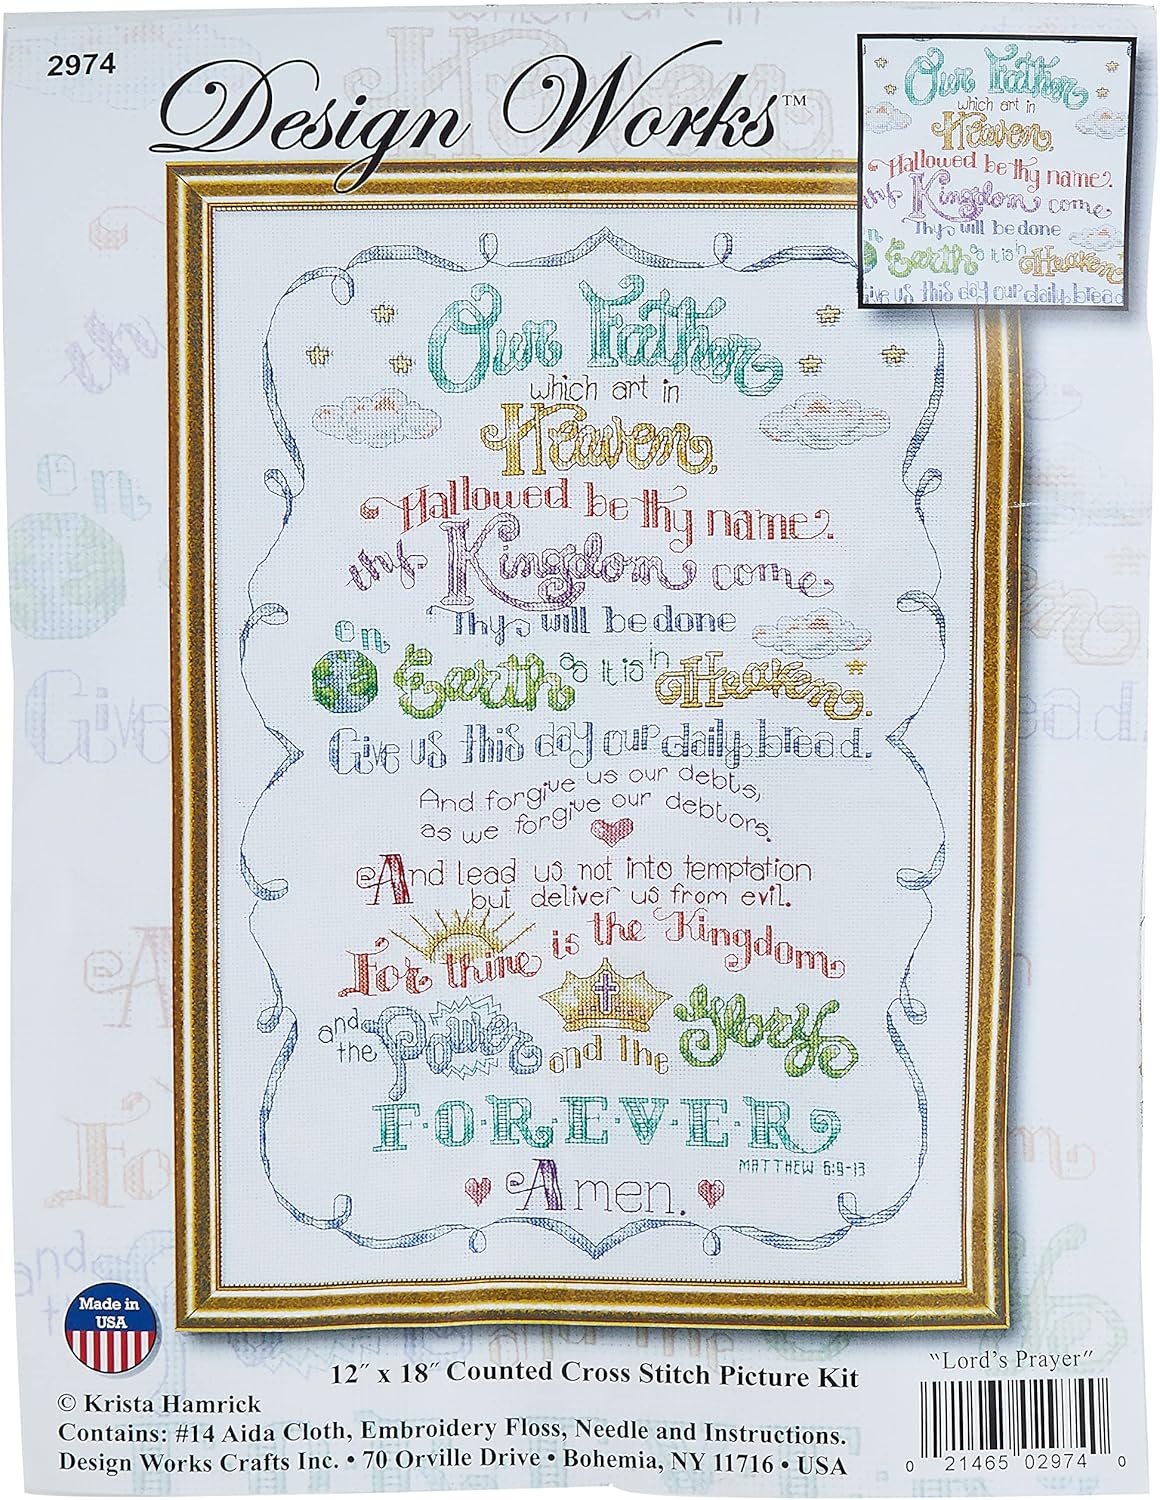 2974
Design Works™
Our Father
which art in
Heaven,
Hallowed be thy name.
thy Kingdom come
Thy will be done
on Earth as it is in Heaven.
Give us this day our daily bread.
And forgive us our debts,
as we forgive our debtors.
And lead us not into temptation
but deliver us from evil.
For thine is the Kingdom
and the Power and the Glory
F·O·R·E·V·E·R
MATTHEW 6:9-13
Amen.
Our Father
which art in
Heaven,
Hallowed be thy name.
thy Kingdom come
Thy will be done
Earth as it is in Heaven
Give us this day our daily bread
on
Give
A
Fo
and
Made in
USA
12″ x 18″ Counted Cross Stitch Picture Kit
© Krista Hamrick
Contains: #14 Aida Cloth, Embroidery Floss, Needle and Instructions.
Design Works Crafts Inc. • 70 Orville Drive • Bohemia, NY 11716 • USA
"Lord's Prayer"
0 21465 02974 0